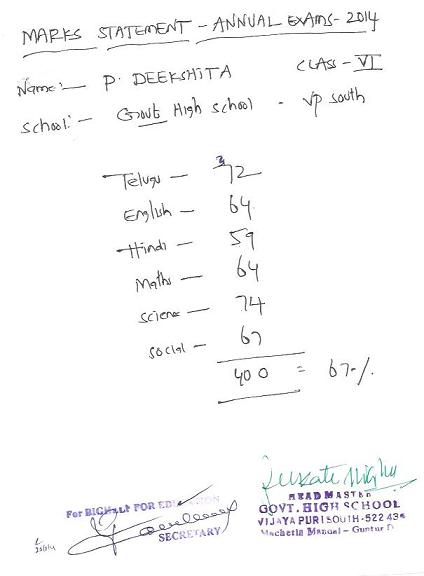 MARKS STATEMENT - ANNUAL EXAMS - 2014
Name:- P. DEEKSHITA CLASS - VI
School:- Govt High school - VP South
Telugu - 72
English - 64
Hindi - 59
Maths - 64
Science - 74
Social - 67
400 = 67%
For BIGHELP FOR EDUCATION
SECRETARY
HEAD MASTER
GOVT. HIGH SCHOOL
VIJAYAPURI SOUTH-522 439
Macherla Mandal - Guntur D